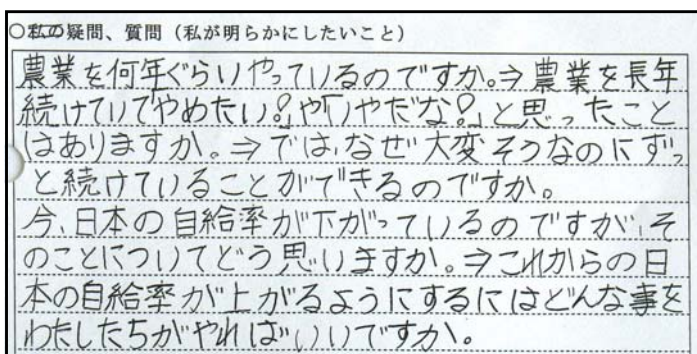 ○私の疑問、質問（私が明らかにしたいこと）
農業を何年ぐらいやっているのですか。⇒農業を長年
続けていて「やめたい？」や「いやだな？」と思ったこと
はありますか。⇒では、なぜ大変そうなのにずっ
と続けていることができるのですか。
今、日本の自給率が下がっているのですが、そ
のことについてどう思いますか。⇒これからの日
本の自給率が上がるようにするにはどんな事を
わたしたちがやればいいですか。